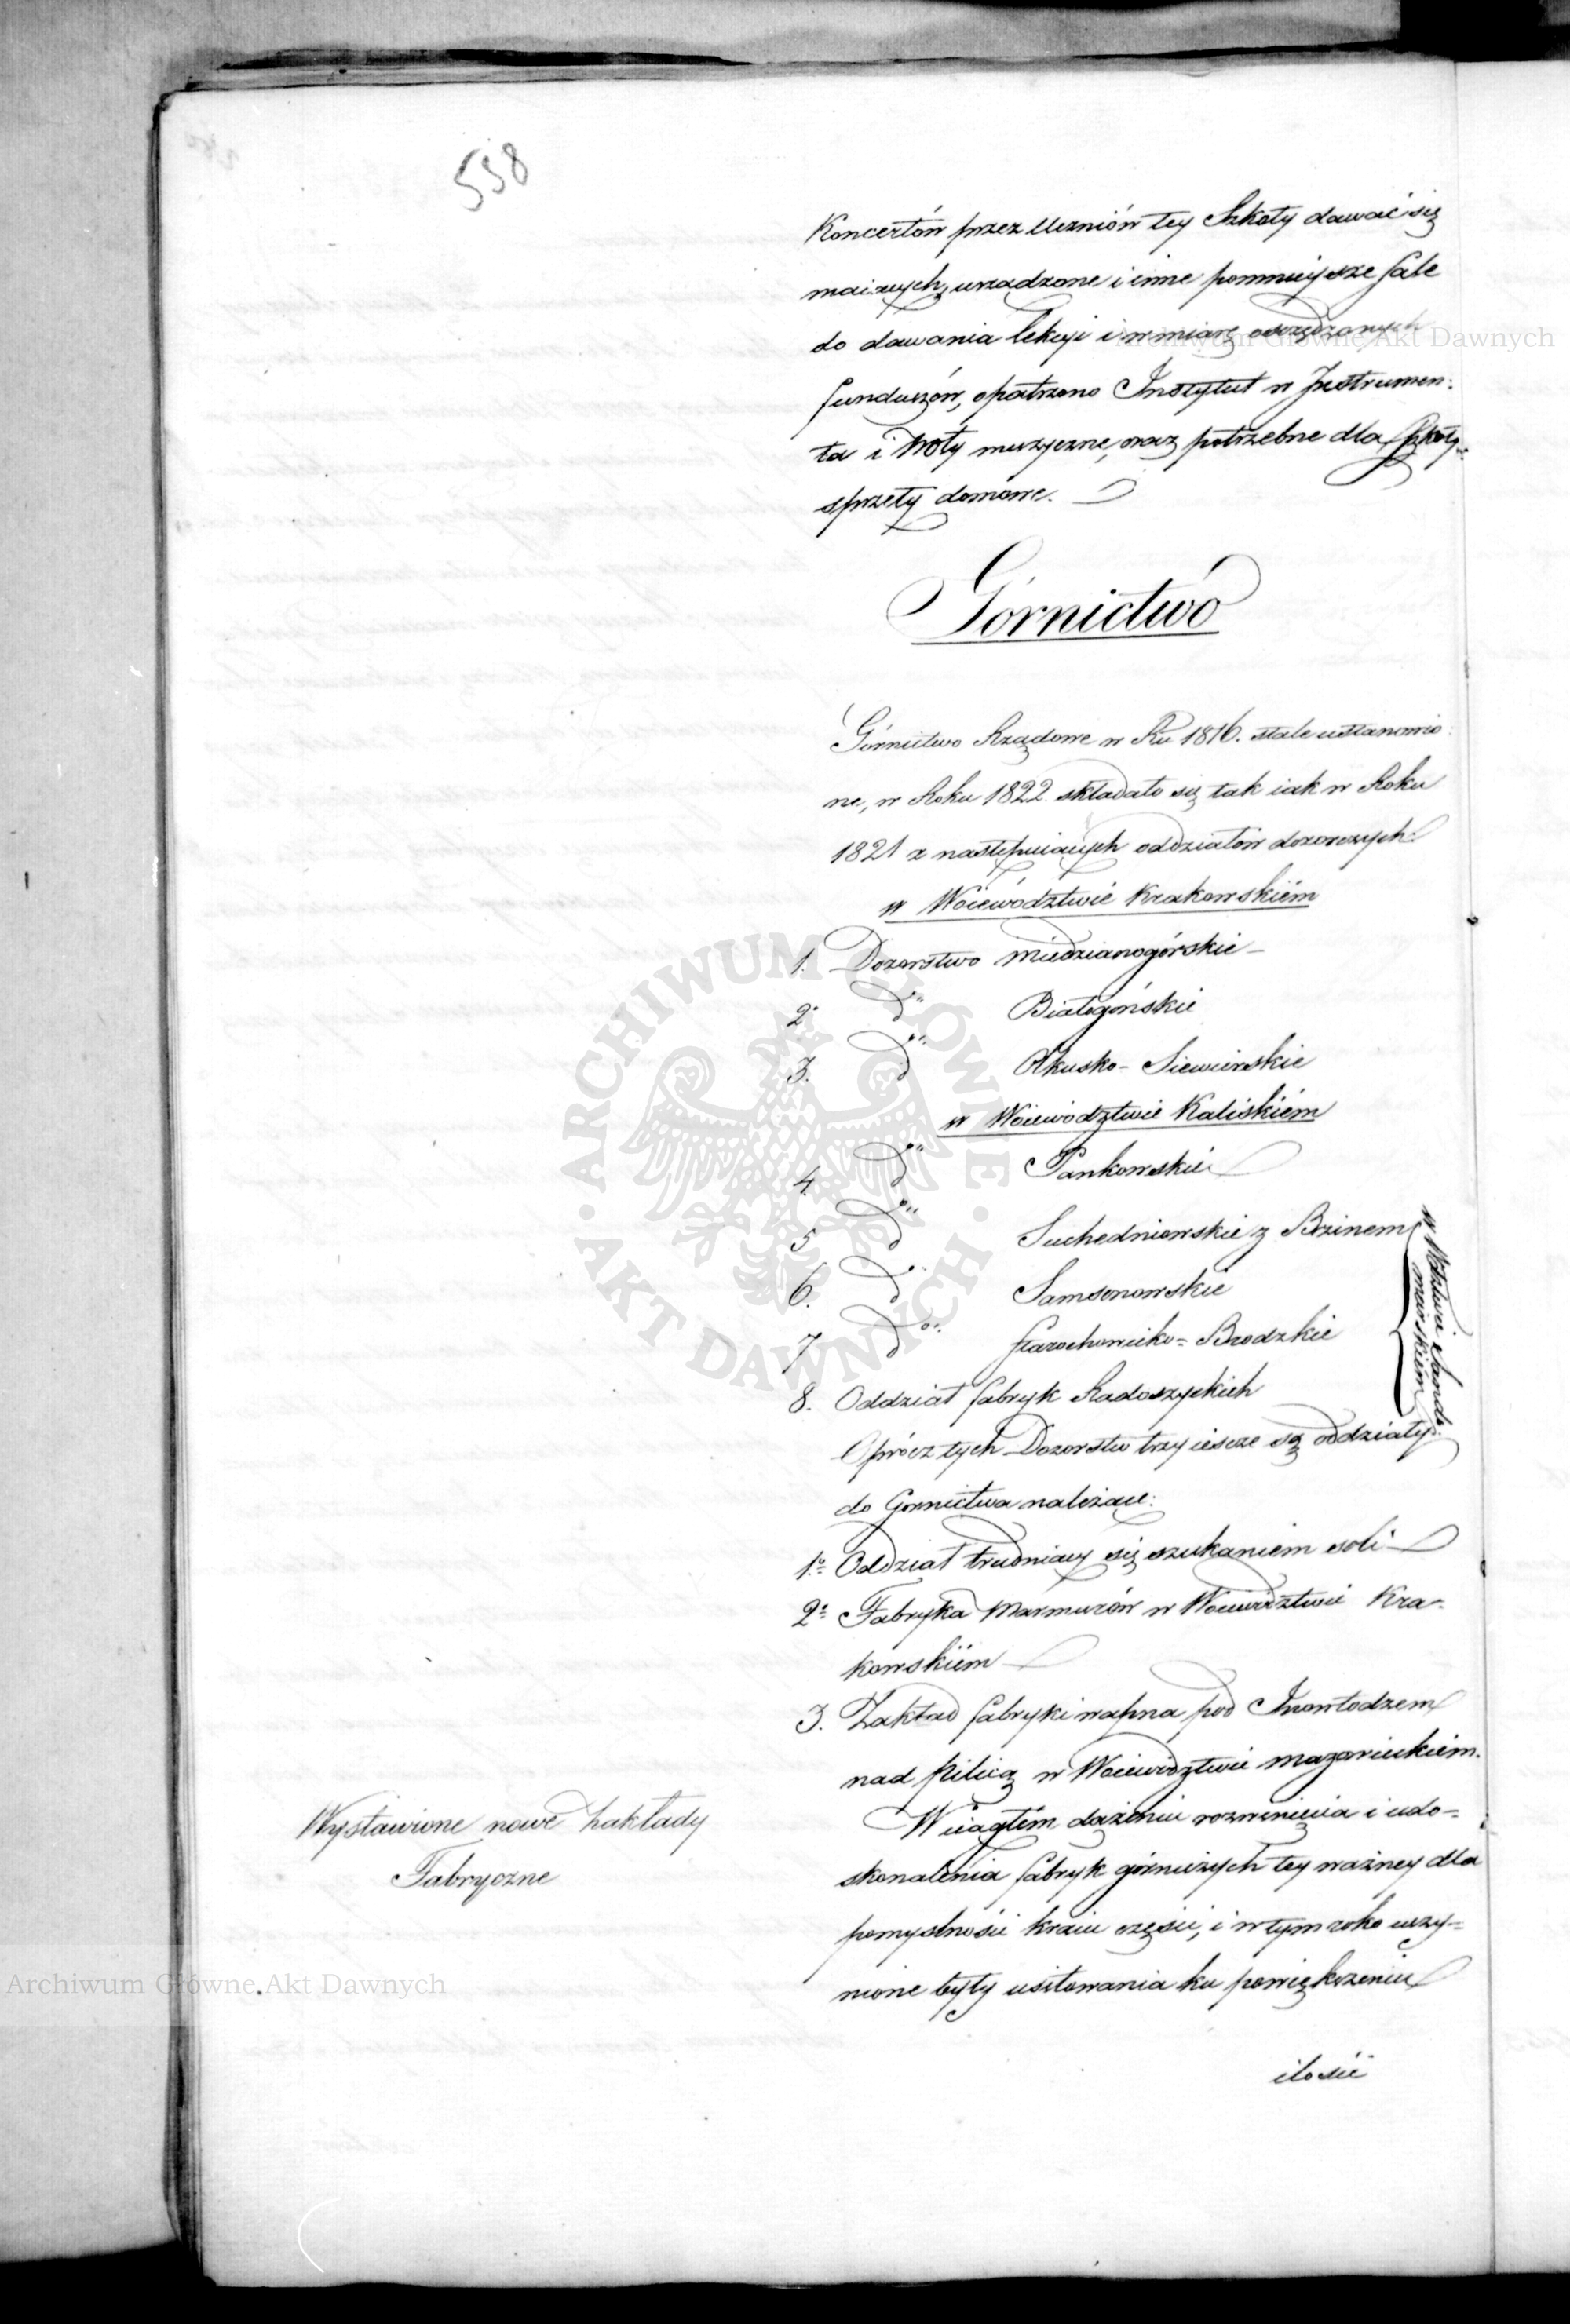 558
Koncertów przez Uczniów tey Szkoły dawać się
maiących, urządzone i inne pomnieysze sale
do dawania lekcyi i w miarę oszczędzonych
funduszów, opatrzono Instytut w Instrumen:
ta i Noty muzyczne, oraz potrzebne dla Szkoły
sprzęty domowe.
Górnictwo
Górnictwo Rządowe w Ru 1816. stale ustanowio:
ne, w Roku 1822 składało się tak iak w Roku
1821 z następuiących oddziałów dozorczych.
w Woiewództwie Krakowskiém
1. Dozorstwo Miedzianogórskie
2. do Białogońskie
3. do Olkusko-Siewierskie
w Woiewództwie Kaliskiém
4 do Pankowskie
5 do Suchedniowskie z Brzinem
6. do Samsonowskie
7 do Starachowicko-Brodzkie
w Wdztwie Sando
mirskiem
8. Oddział fabryk Radoszyckich
Oprócz tych Dozorstw trzy ieszcze są oddziały
do Górnictwa należące:
1o Oddział trudniący się szukaniem soli
2o Fabryka Marmurów w Woiewództwie Kra-
kowskiém
3. Zakład fabryki wapna pod Inowłodzem
nad Pilicą w Woiewództwie Mazowieckiém.
Wystawione nowe Zakłady
Fabryczne
W ciągłém dążeniu rozwinięcia i udo-
skonalenia fabryk górniczych tey ważney dla
pomyślności kraiu części, i w tym roku uczy-
nione były usiłowania ku powiększeniu
ilości
Archiwum Główne Akt Dawnych
Archiwum Główne Akt Dawnych
ARCHIWUM GŁÓWNE AKT DAWNYCH